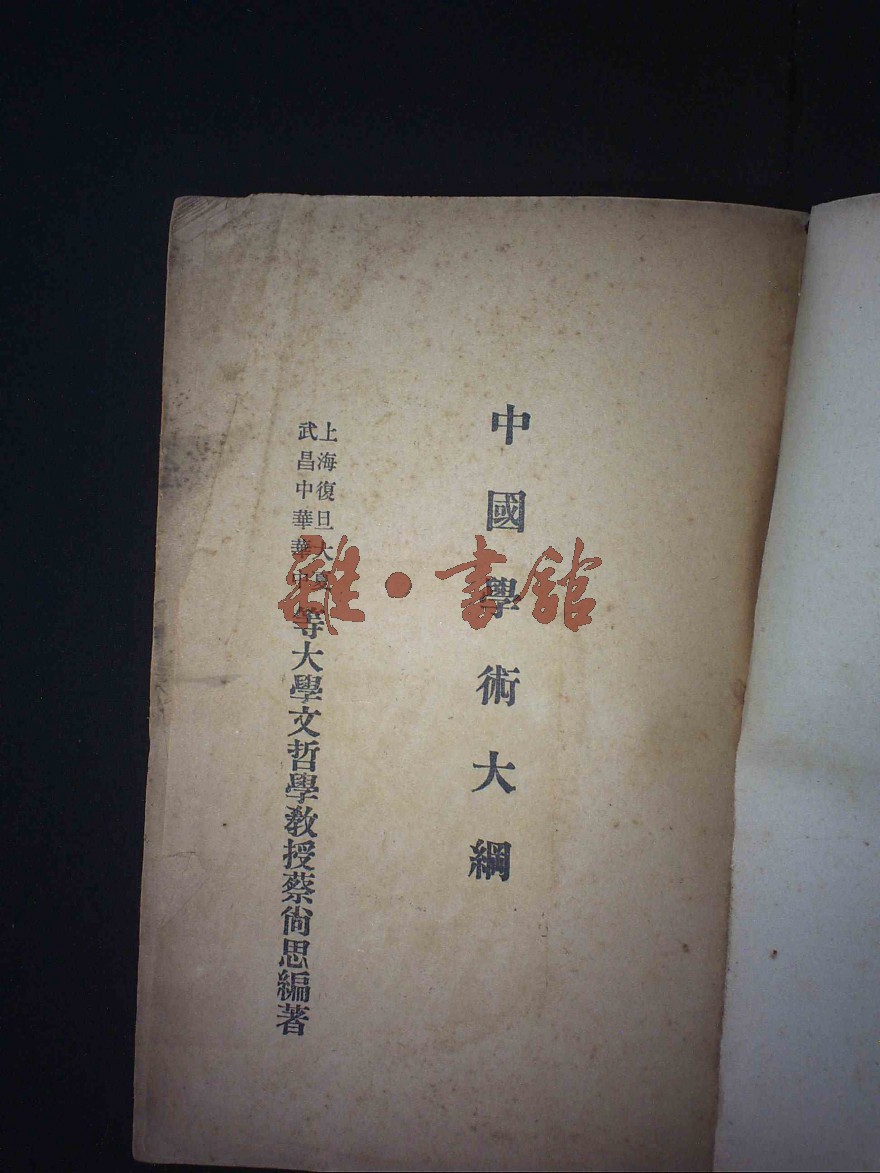 中國學術大綱
上海復旦大夏
武昌中華華中
等大學文哲學教授蔡尙思編著
雜·書館